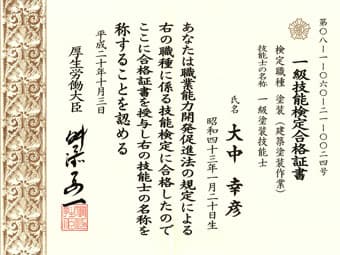 第〇八-一-〇六〇-二一-〇〇二四号
一級技能検定合格証書
検定職種 塗装（建築塗装作業）
技能士の名称 一級塗装技能士
氏名 大中 幸彦
昭和四十三年一月二十日生
あなたは職業能力開発促進法の規定による
右の職種に係る技能検定に合格したので
ここに合格証書を授与し右の技能士の名称を
称することを認める
平成二十年十月三日
厚生労働大臣